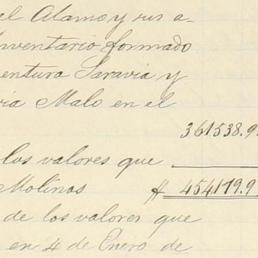 el Alamo y sus a-
Inventario formado
entura Saravia y
ia Malo en el
361538.9
los valores que
Molinos # 454179.9
de los valores que
en 4 de Enero de